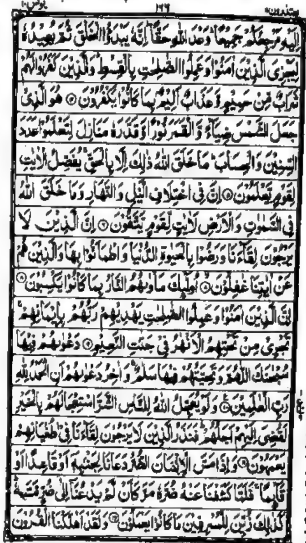 يعتذرون ١١ ١٦٦ يونس ١٠
اِلَیْهِ مَرْجِعُكُمْ جَمِیْعًا وَعْدَ اللّٰهِ حَقًّا اِنَّهٗ یَبْدَؤُا الْخَلْقَ ثُمَّ یُعِیْدُهٗ
لِیَجْزِیَ الَّذِیْنَ اٰمَنُوْا وَعَمِلُوا الصّٰلِحٰتِ بِالْقِسْطِ وَالَّذِیْنَ كَفَرُوْا لَهُمْ
شَرَابٌ مِّنْ حَمِیْمٍ وَّعَذَابٌ اَلِیْمٌۢ بِمَا كَانُوْا یَكْفُرُوْنَ هُوَ الَّذِیْ
جَعَلَ الشَّمْسَ ضِیَآءً وَّالْقَمَرَ نُوْرًا وَّقَدَّرَهٗ مَنَازِلَ لِتَعْلَمُوْا عَدَدَ
السِّنِیْنَ وَالْحِسَابَ مَا خَلَقَ اللّٰهُ ذٰلِكَ اِلَّا بِالْحَقِّ یُفَصِّلُ الْاٰیٰتِ
لِقَوْمٍ یَّعْلَمُوْنَ اِنَّ فِی اخْتِلَافِ الَّیْلِ وَالنَّهَارِ وَمَا خَلَقَ اللّٰهُ
فِی السَّمٰوٰتِ وَالْاَرْضِ لَاٰیٰتٍ لِّقَوْمٍ یَّتَّقُوْنَ اِنَّ الَّذِیْنَ لَا
یَرْجُوْنَ لِقَآءَنَا وَرَضُوْا بِالْحَیٰوةِ الدُّنْیَا وَاطْمَاَنُّوْا بِهَا وَالَّذِیْنَ هُمْ
عَنْ اٰیٰتِنَا غٰفِلُوْنَ اُولٰٓئِكَ مَاْوٰىهُمُ النَّارُ بِمَا كَانُوْا یَكْسِبُوْنَ
اِنَّ الَّذِیْنَ اٰمَنُوْا وَعَمِلُوا الصّٰلِحٰتِ یَهْدِیْهِمْ رَبُّهُمْ بِاِیْمَانِهِمْ
تَجْرِیْ مِنْ تَحْتِهِمُ الْاَنْهٰرُ فِیْ جَنّٰتِ النَّعِیْمِ دَعْوٰىهُمْ فِیْهَا
سُبْحٰنَكَ اللّٰهُمَّ وَتَحِیَّتُهُمْ فِیْهَا سَلٰمٌ وَاٰخِرُ دَعْوٰىهُمْ اَنِ الْحَمْدُ لِلّٰهِ
رَبِّ الْعٰلَمِیْنَ وَلَوْ یُعَجِّلُ اللّٰهُ لِلنَّاسِ الشَّرَّ اسْتِعْجَالَهُمْ بِالْخَیْرِ
لَقُضِیَ اِلَیْهِمْ اَجَلُهُمْ فَنَذَرُ الَّذِیْنَ لَا یَرْجُوْنَ لِقَآءَنَا فِیْ طُغْیَانِهِمْ
یَعْمَهُوْنَ وَاِذَا مَسَّ الْاِنْسَانَ الضُّرُّ دَعَانَا لِجَنْۢبِهٖٓ اَوْ قَاعِدًا اَوْ
قَآئِمًا فَلَمَّا كَشَفْنَا عَنْهُ ضُرَّهٗ مَرَّ كَاَنْ لَّمْ یَدْعُنَآ اِلٰی ضُرٍّ مَّسَّهٗ
كَذٰلِكَ زُیِّنَ لِلْمُسْرِفِیْنَ مَا كَانُوْا یَعْمَلُوْنَ وَلَقَدْ اَهْلَكْنَا الْقُرُوْنَ